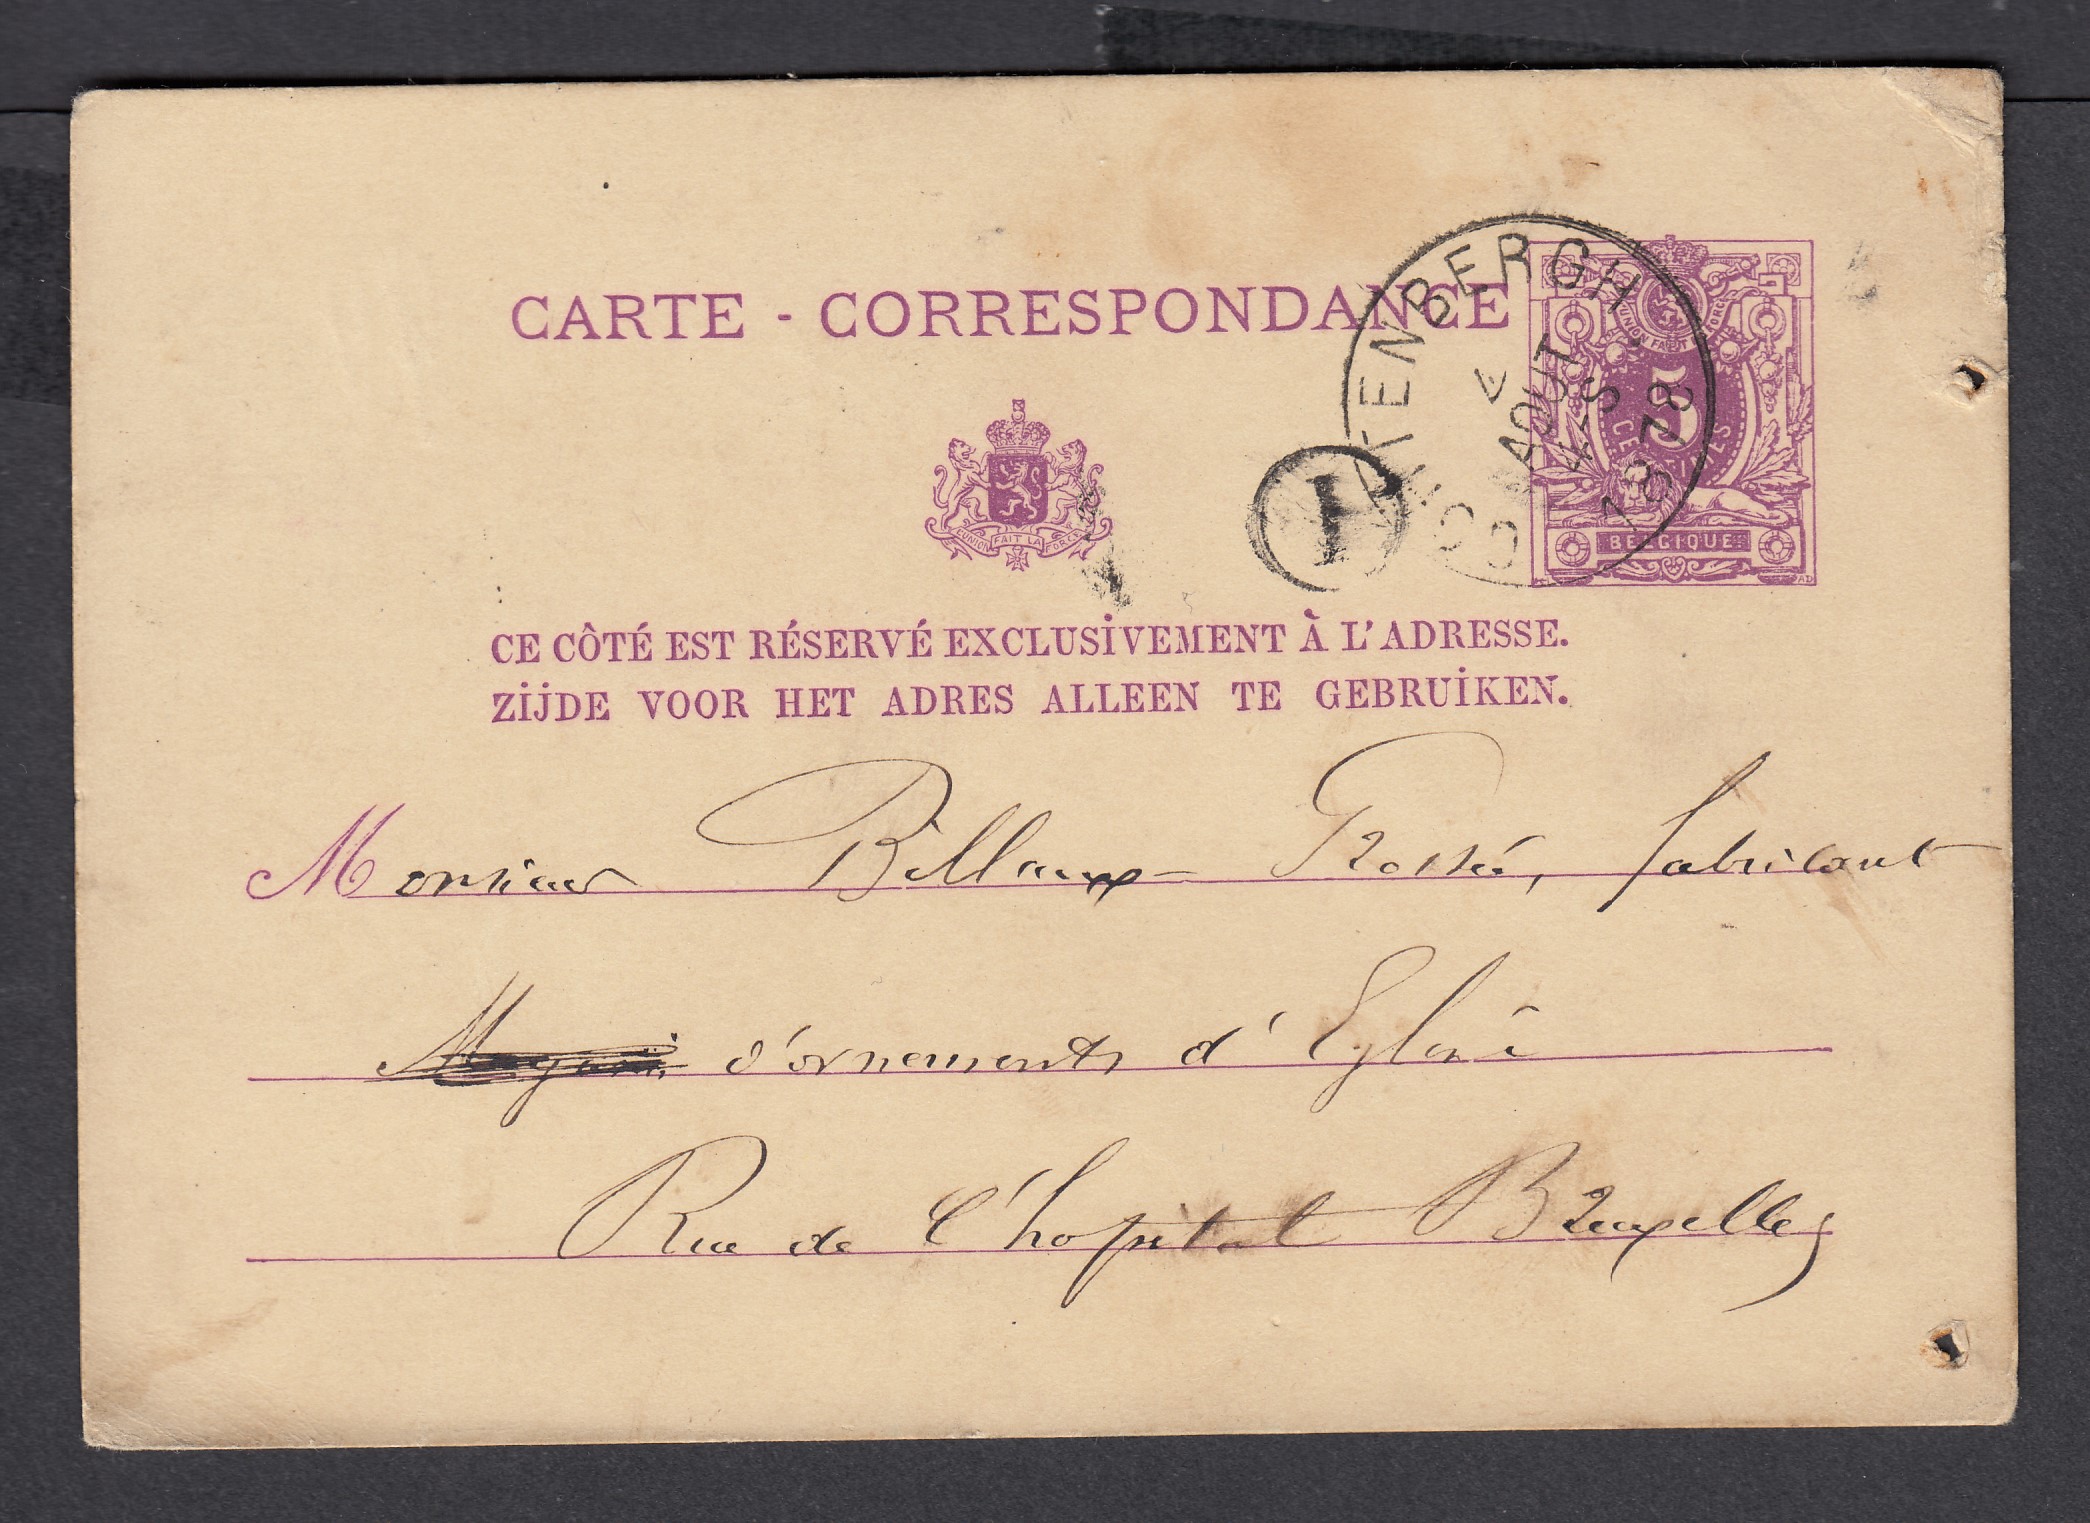 CARTE - CORRESPONDANCE
5
CENTIMES
L'UNION FAIT LA FORCE
BELGIQUE
KENBERGH
AOUT
4-S
1878
1
L'UNION FAIT LA FORCE
CE CÔTÉ EST RÉSERVÉ EXCLUSIVEMENT À L'ADRESSE.
ZIJDE VOOR HET ADRES ALLEEN TE GEBRUIKEN.
Monsieur Billaux-Grossé, fabricant
d'ornements d'Eglise
Rue de l'hopital Bruxelles